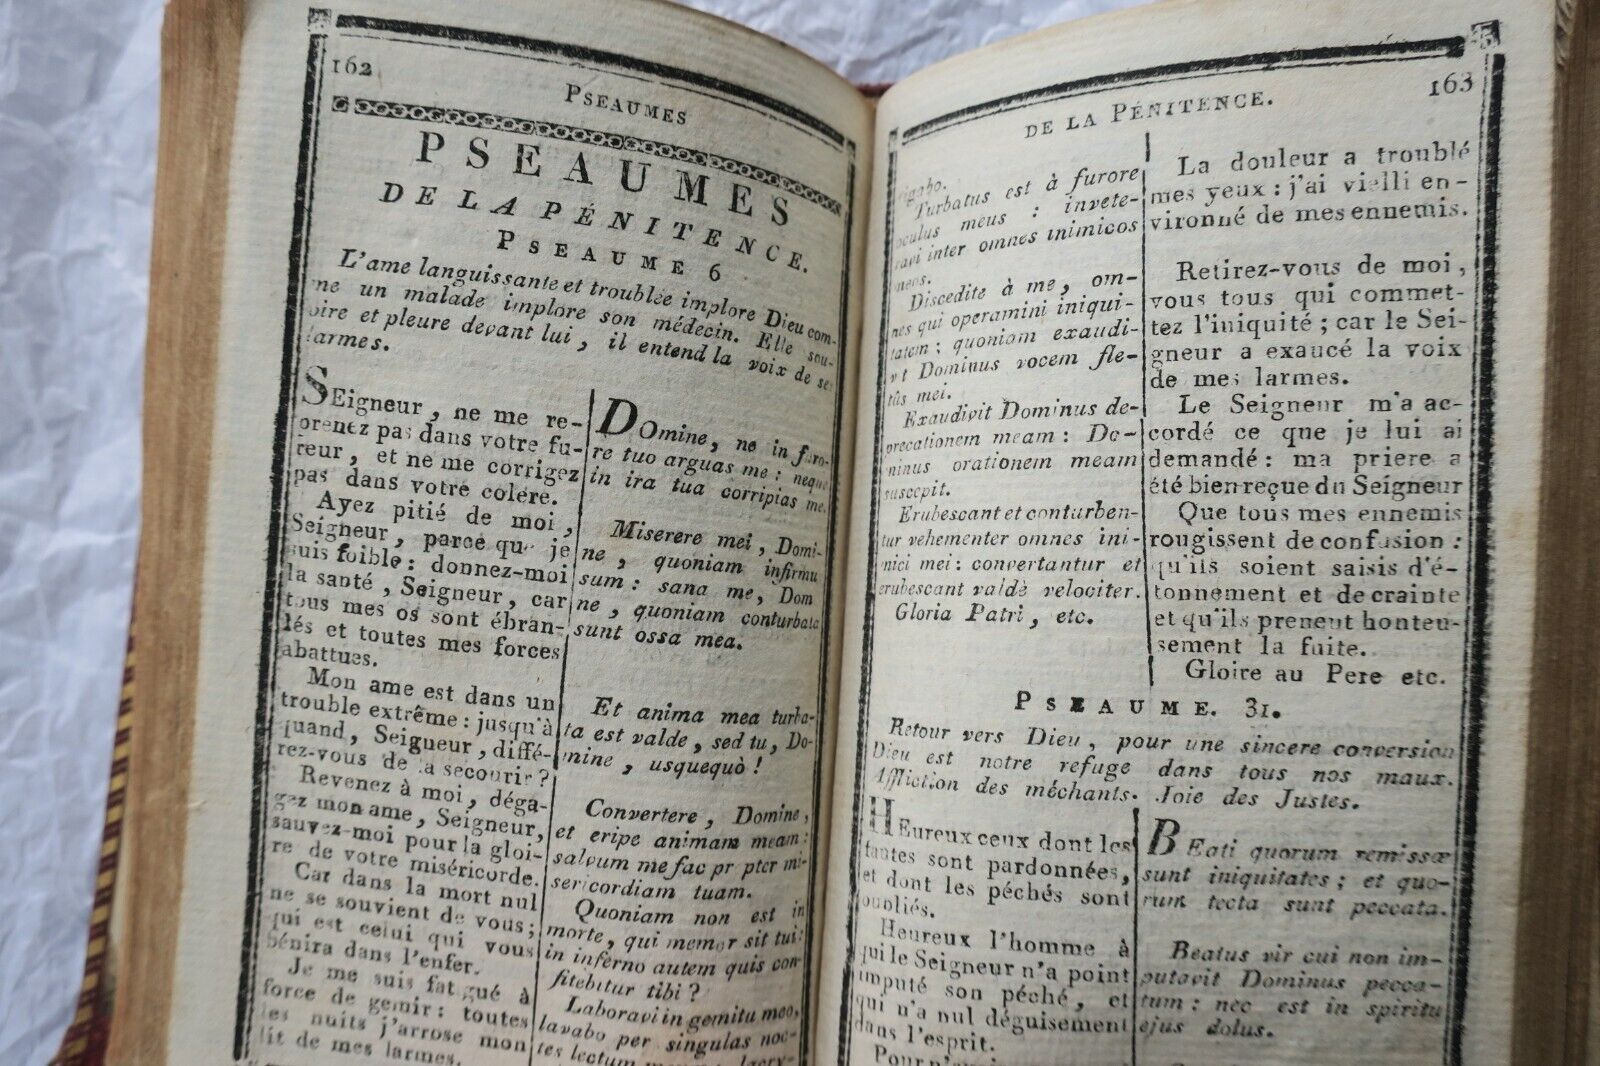 162
PSEAUMES
PSEAUMES
DE LA PÉNITENCE.
PSEAUME 6
L'ame languissante et troublée implore Dieu com-
me un malade implore son médecin. Elle sou-
pire et pleure devant lui, il entend la voix de se
larmes.
SEigneur, ne me re-
prenez pas dans votre fu-
reur, et ne me corrigez
pas dans votre colere.
Ayez pitié de moi,
Seigneur, parce que je
suis foible: donnez-moi
la santé, Seigneur, car
tous mes os sont ébran-
lés et toutes mes forces
abattues.
Mon ame est dans un
trouble extrême: jusqu'à
quand, Seigneur, diffé-
rez-vous de la secourir?
Revenez à moi, déga-
gez mon ame, Seigneur,
sauvez-moi pour la gloi-
re de votre miséricorde.
Car dans la mort nul
ne se souvient de vous;
qui est celui qui vous
bénira dans l'enfer.
Je me suis fatigué à
force de gemir: toutes
les nuits j'arrose mon
lit de mes larmes.
DOmine, ne in furo-
re tuo arguas me: neque
in ira tua corripias me.
Miserere mei, Domi-
ne, quoniam infirmu
sum: sana me, Dom
ne, quoniam conturbata
sunt ossa mea.
Et anima mea turba-
ta est valde, sed tu, Do-
mine, usquequò!
Convertere, Domine,
et eripe animam meam:
salvum me fac pr pter mi-
sericordiam tuam.
Quoniam non est in
morte, qui memor sit tui:
in inferno autem quis con-
fitebitur tibi?
Laboravi in gemitu meo,
lavabo per singulas noc-
tes lectum
DE LA PÉNITENCE.
163
rigabo.
Turbatus est à furore
oculus meus: invete-
ravi inter omnes inimicos
meos.
Discedite à me, om-
nes qui operamini iniqui-
tatem; quoniam exaudi-
vit Dominus vocem fle-
tûs mei.
Exaudivit Dominus de-
precationem meam: Do-
minus orationem meam
suscepit.
Erubescant et conturben-
tur vehementer omnes ini-
mici mei: convertantur et
erubescant valdè velociter.
Gloria Patri, etc.
La douleur a troublé
mes yeux: j'ai vielli en-
vironné de mes ennemis.
Retirez-vous de moi,
vous tous qui commet-
tez l'iniquité; car le Sei-
gneur a exaucé la voix
de mes larmes.
Le Seigneur m'a ac-
cordé ce que je lui ai
demandé: ma priere a
été bien reçue du Seigneur
Que tous mes ennemis
rougissent de confusion:
qu'ils soient saisis d'é-
tonnement et de crainte
et qu'ils prenent honteu-
sement la fuite.
Gloire au Pere etc.
PSEAUME. 31.
Retour vers Dieu, pour une sincere conversion
Dieu est notre refuge dans tous nos maux.
Affliction des méchants. Joie des Justes.
HEureux ceux dont les
fautes sont pardonnées,
et dont les péchés sont
oubliés.
Heureux l'homme à
qui le Seigneur n'a point
imputé son péché, et
qui n'a nul déguisement
dans l'esprit.
BEati quorum remissæ
sunt iniquitates; et quo-
rum tecta sunt peccata.
Beatus vir cui non im-
putavit Dominus pecca-
tum: nec est in spiritu
ejus dolus.